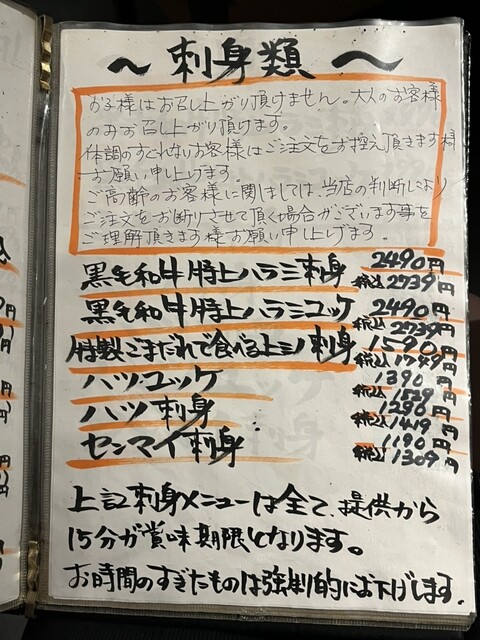 ～ 刺身類 ～
お子様はお召し上がり頂けません。大人のお客様
のみお召し上がり頂けます。
体調のすぐれないお客様はご注文をお控え頂きます様
お願い申し上げます。
ご高齢のお客様に関しましては、当店の判断により
ご注文をお断りさせて頂く場合がございます事を
ご理解頂きます様お願い申し上げます。
黒毛和牛特上ハラミ刺身 2490円
税込2739円
黒毛和牛特上ハラミユッケ 2490円
税込2739円
特製ごまだれで食べる上ミノ刺身 1590円
税込1749円
ハツユッケ 1390円
税込1529円
ハツ刺身 1290円
税込1419円
センマイ刺身 1190円
税込1309円
上記刺身メニューは全て、提供から
15分が賞味期限となります。
お時間のすぎたものは強制的にお下げします。